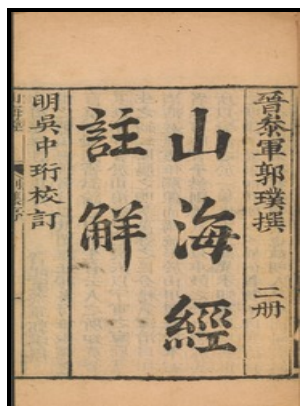 晉叅軍郭璞撰 二册
山海經
註解
明吳中珩校訂